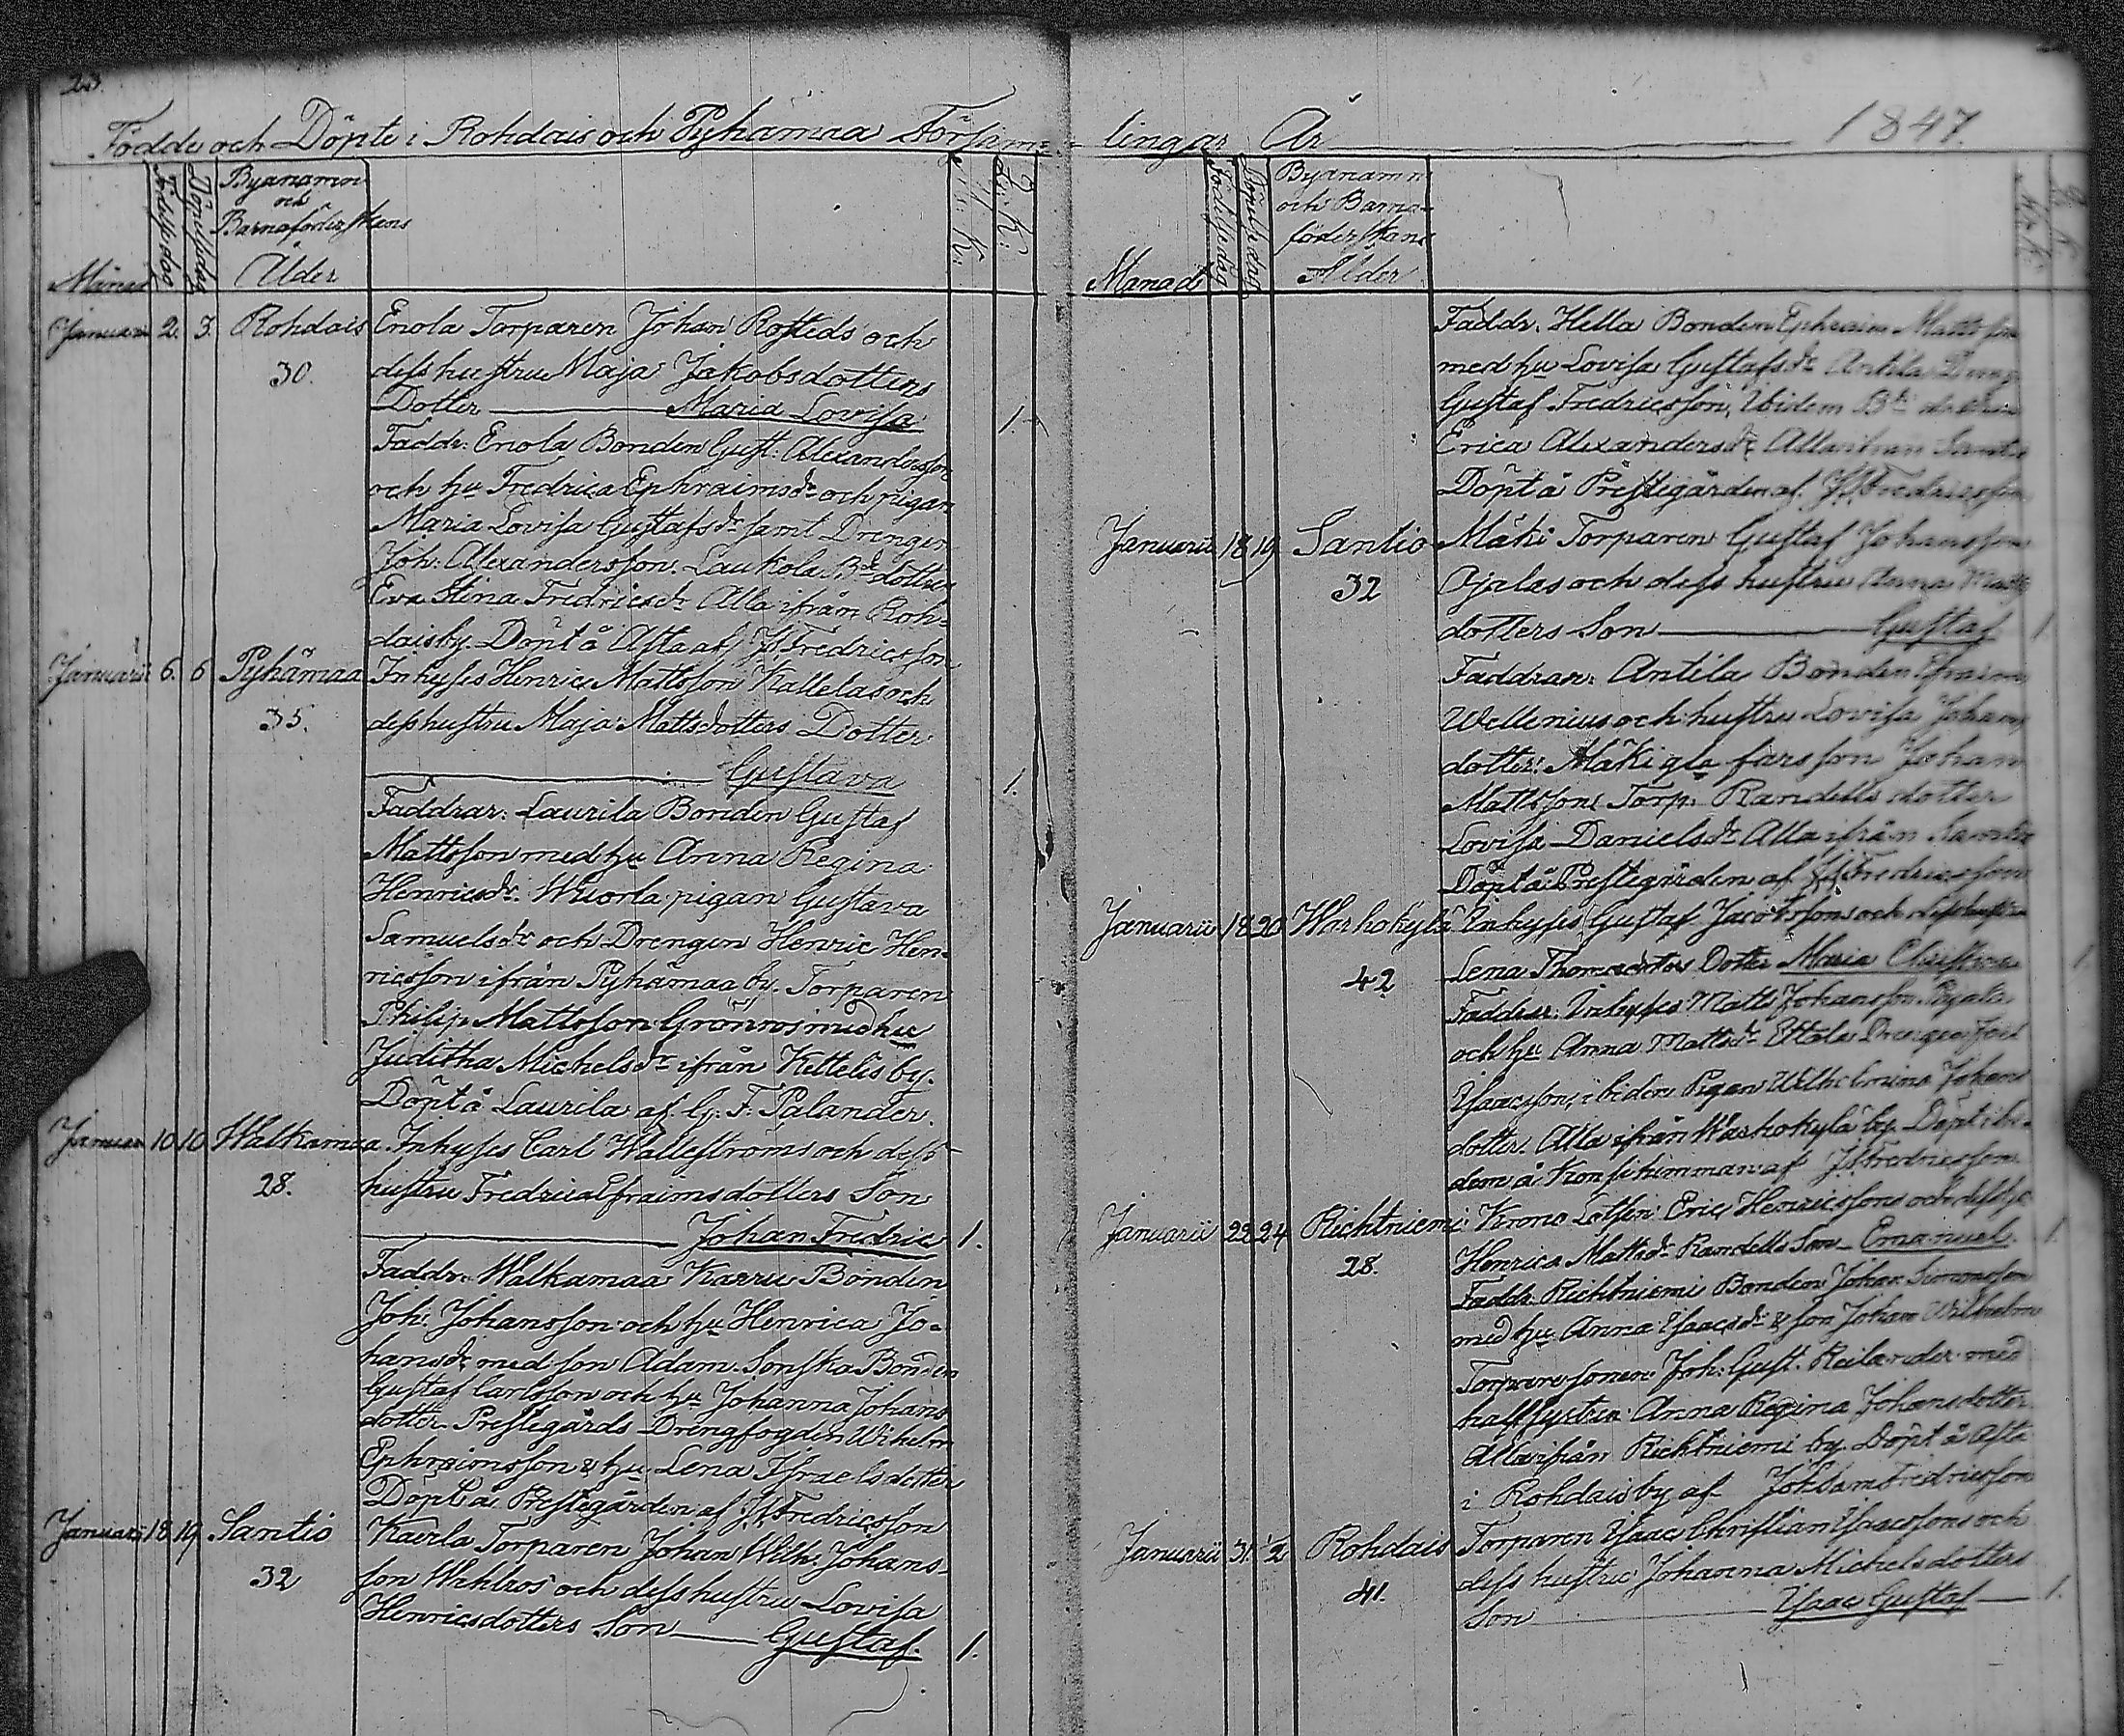 23.
Födde och Döpte i Rohdais och Pyhämaa Församlingar År 1847.
Månad Födelsedag Döpelsedag Byanamn och Barnaföderskans Ålder M: K: Q: K:
Januarii 2. 3. Rohdais Enola Torparen Johan Rosteds och
30. dess hustru Maja Jakobsdotters
Dotter — Maria Lovisa 1.
Faddr: Enola Bonden Gust: Alexandersson
och hu Fredrica Ephraimsdr och pigan
Maria Lovisa Gustafsdr samt Drengen
Joh: Alexandersson. Laukola Bde dottren
Eva Stina Fredricsdr Alla ifrån Roh-
daisby. Döpt å Asta af J Fredricsson
Januarii 6. 6 Pyhämaa Inhyses Henric Mattsson Kallelas och
35. dess hustru Maja Mattsdotters Dotter
— Gustava 1.
Faddrar: Laurila Bonden Gustaf
Mattsson med hu Anna Regina
Henricsdr. Wuorla pigan Gustava
Samuelsdr och Drengen Henric Hen-
ricsson ifrån Pyhämaa by. Torparen
Philip Mattsson Grönros med hu
Juditha Michelsdr ifrån Kettelis by.
Döpt å Laurila af G. F. Palander.
Januari 10 10 Walkamaa Inhyses Carl Wallströms och dess
28. hustru Fredrica Efraimsdotters Son
— Johan Fredric 1.
Faddr: Walkamaa Karru Bonden
Joh. Johansson och hu Henrica Jo-
hansdr med son Adam. Sonska Bonden
Gustaf Carlsson och hu Johanna Johans
dotter. Prestegårds Drengfogden Wihelm
Ephraimsson & hu Lena Israelsdotter
Döpt å Prestegården af J Fredricsson
Januari 18 19 Santio Kaerla Torparen Johan Wilh. Johans-
32 son Wahlros och dess hustru Lovisa
Henricsdotters Son — Gustaf. 1.
Månad Födelsedag Döpelsedag Byanamn och Barnaföderskans Ålder
Faddr. Hella Bonden Ephraim Mattsson
med hu Lovisa Gustafsdr Antila Dreng
Gustaf Fredricsson, Ibidem Bde dottren
Erica Alexandersdr Alla ifrån Santio
Döpt å Prestegården af J Fredricsson
Januarii 18 19 Santio Mäki Torparen Gustaf Johansson
32 Ojalas och dess hustru Anna Matts
dotters Son — Gustaf 1
Faddrar: Antila Bonden Efraim
Wellenius och hustru Lovisa Johans
dotter. Mäki gla farsson Johan
Mattsson, Torp. Randells dotter
Lovisa Danielsdr Alla ifrån Santio
Döpt å Prestegården af J Fredricsson
Januarii 18 20 Warhokylä Inhyses Gustaf Jacobssons och dess hustru
42 Lena Thomasdotters Dotter Maria Christina 1
Faddrar: Inhyses Matts Johansson
och hu Anna Mattsdr Ettala Drengen
Isaacsson, ibidem Pigan Wilhelmina Johans
dotter. Alla ifrån Warhokylä by. Döpt ibi-
dem å af J Fredricsson
Januarii 22 24 Richtniemi Krono Lotsen Eric Henricssons och dess hu
28. Henrica Mattsdr Randells Son — Emanuel. 1.
Faddr. Richtniemi Bonden Johan Simonsson
med hu Anna Isaacsdr & son Johan Wilhelm
Torparesonen Joh: Gust. Reilander med
halfsystra Anna Regina Johansdotter
Alla ifrån Richtniemi by. Döpt å Asta
i Rohdais by af Joh Sam Fredricsson
Januarii 31. 2 Rohdais Torparen Isaac Christian Isaacssons och
41. dess hustru Johanna Michelsdotters
Son — Isaac Gustaf — 1.